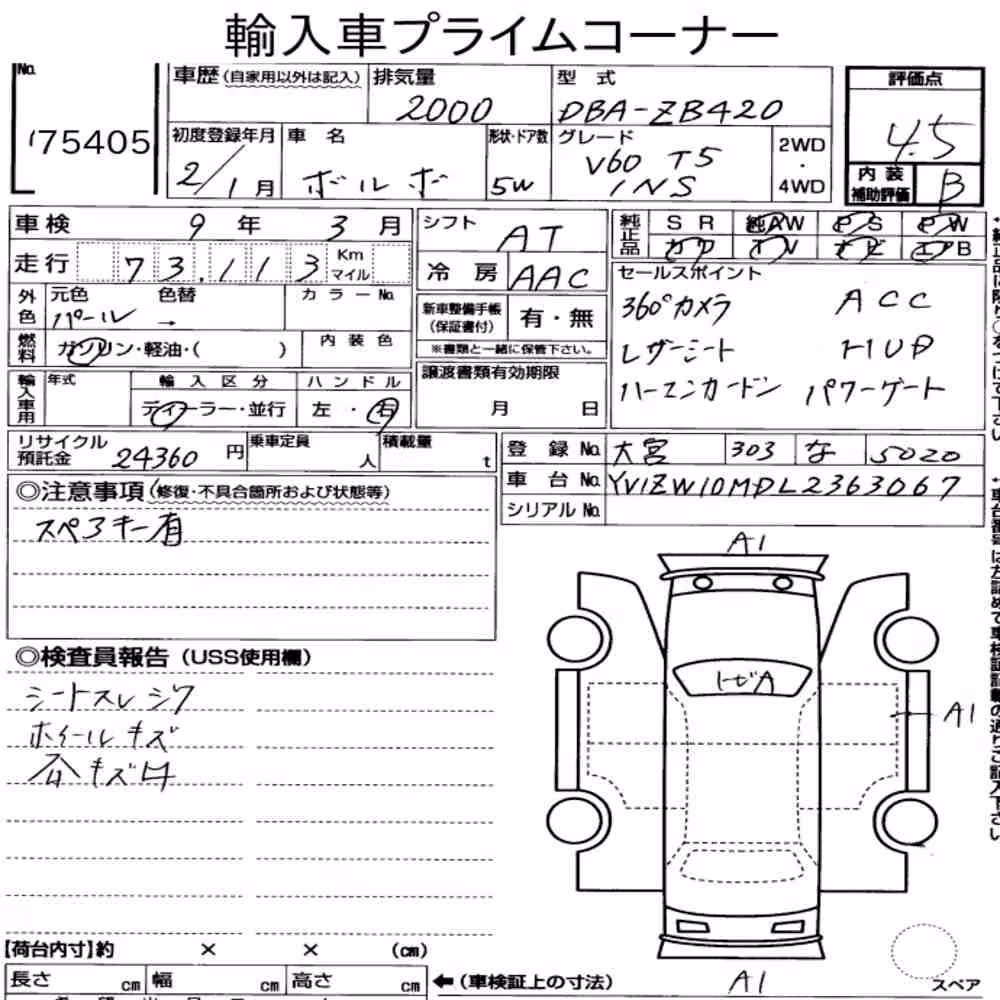 輸入車プライムコーナー
No.
175405
車歴(自家用以外は記入)
排気量
2000
型 式
DBA-ZB420
評価点
4.5
初度登録年月
2/1月
車 名
ボルボ
形状・ドア数
5W
グレード
V60 T5
INS
2WD
・
4WD
内装
補助評価
B
車検 9年 3月
シフト
AT
純正品
SR 純AW PS PW
カワ TV ナビ エアB
走行 73,113 Km
マイル
冷房 AAC
セールスポイント
360°カメラ ACC
レザーシート HUD
ハーマンカードン パワーゲート
外色
元色 色替 カラーNo.
パール →
新車整備手帳
(保証書付)
有・無
※書類と一緒に保管下さい。
燃料
ガソリン・軽油・( )
内装色
譲渡書類有効期限
月 日
輸入車用
年式
輸入区分
ディーラー・並行
ハンドル
左・右
リサイクル
預託金
24360円
乗車定員
人
積載量
t
登録No. 大宮 303 な 5020
車台No. YV1ZW10MDL2363067
シリアルNo.
◎注意事項(修復・不具合箇所および状態等)
スペアキー有
◎検査員報告(USS使用欄)
シートスレシワ
ホイールキズ
A1
トビA
A1
A1
スペア
【荷台内寸】約 × × (cm)
長さ cm 幅 cm 高さ cm
←(車検証上の寸法)